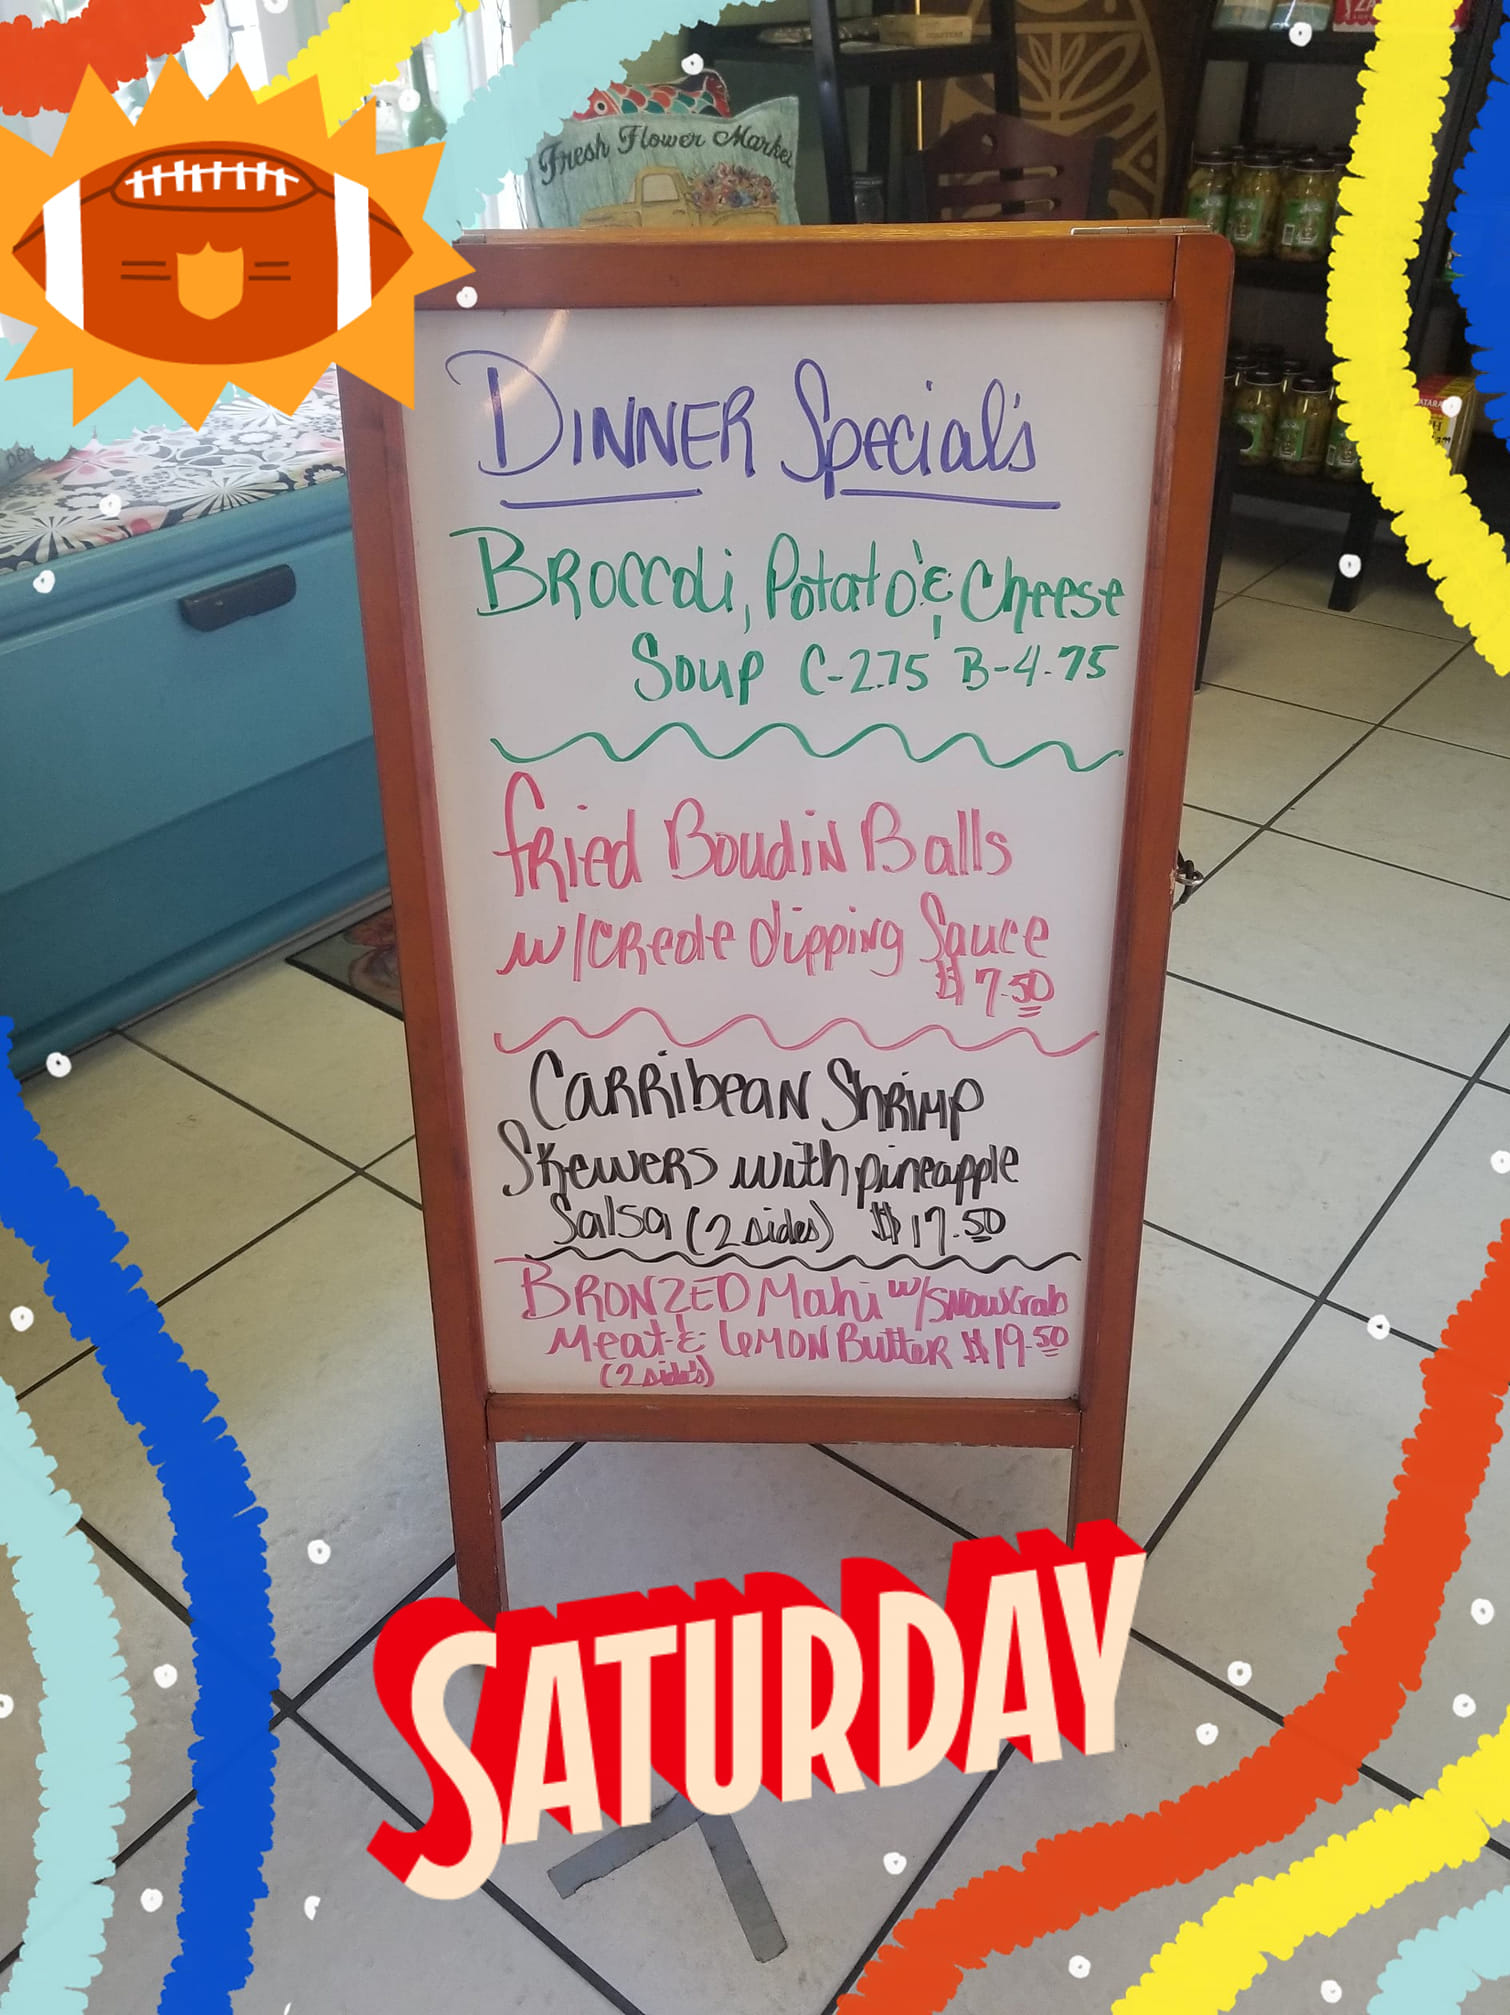 Fresh Flower Market
DINNER Special's
BROCCOLI, Potato & Cheese
Soup C-2.75 B-4.75
fRied Boudin Balls
w/CReole dipping Sauce
$7.50
CARRibeaN ShRiMp
SkeweRs with pineapple
Salsa (2 sides) $17.50
BRONZED Mahi w/SNOWCrab
Meat & LeMON ButteR $19.50
(2 side's)
SATURDAY